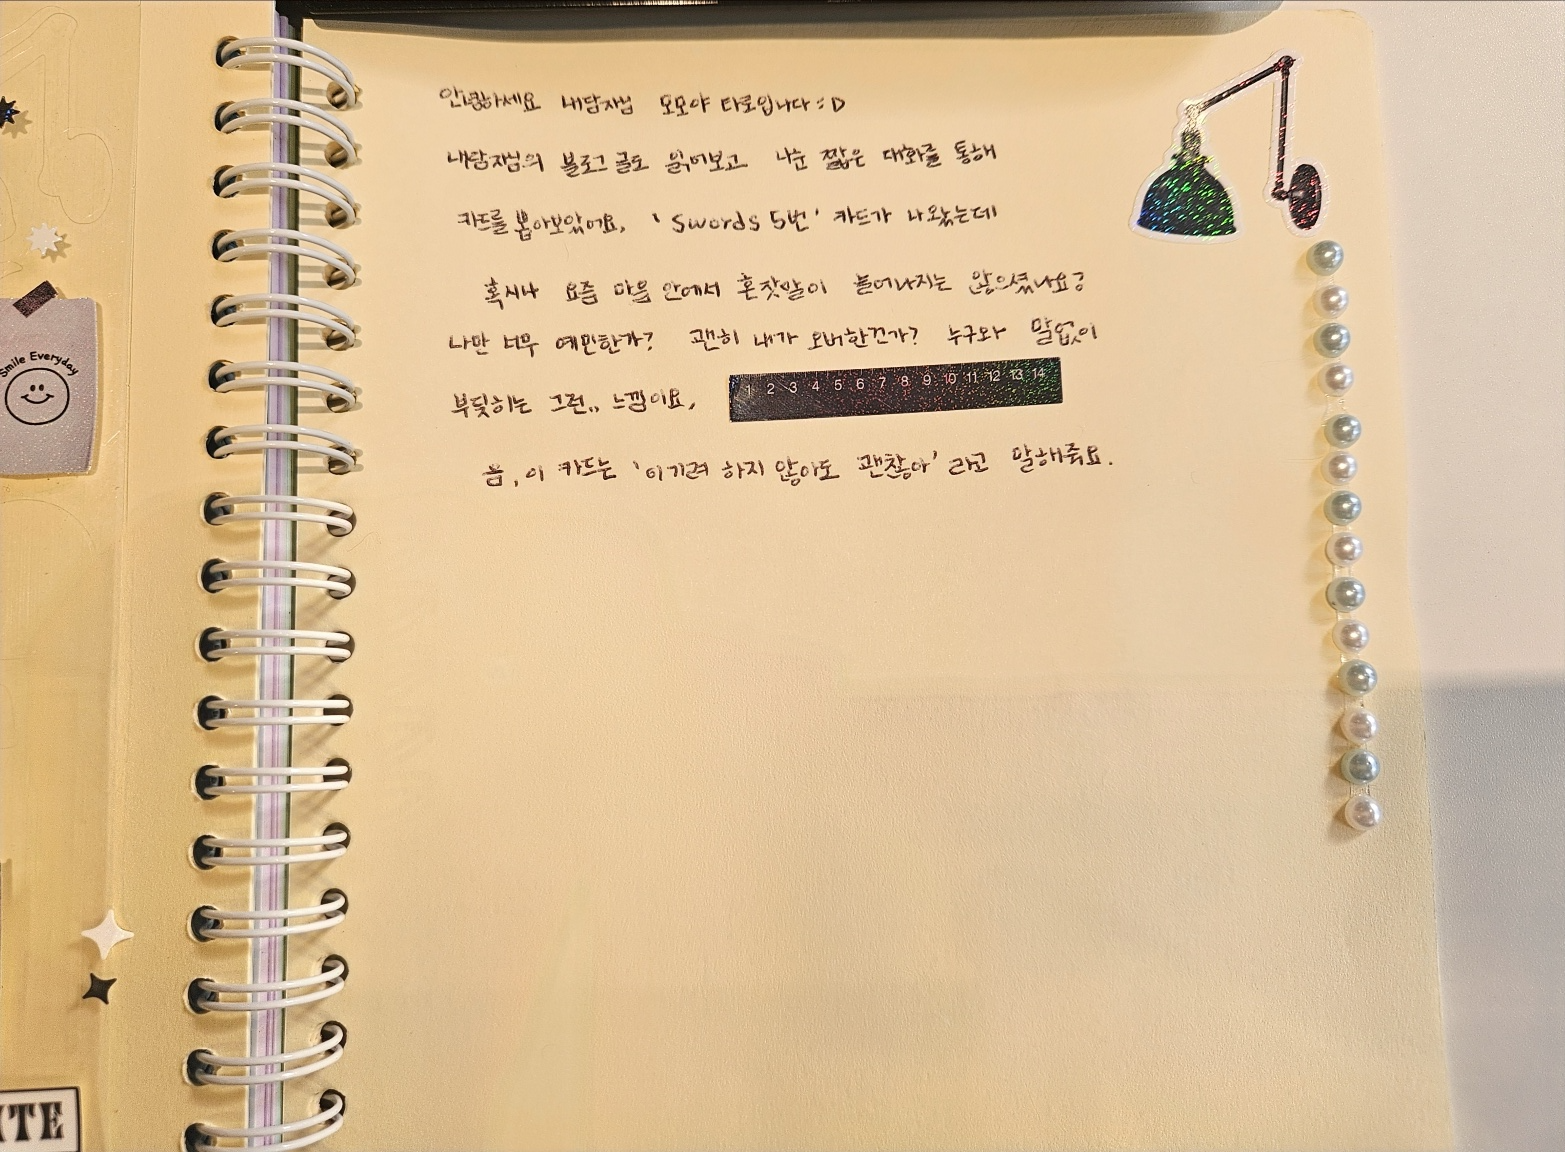 안녕하세요 내담자님 모모야 타로입니다 :D
내담자님의 블로그 글도 읽어보고 나눈 짧은 대화를 통해
카드를 뽑아보았어요, 'Swords 5번' 카드가 나왔는데
혹시나 요즘 마음 안에서 혼잣말이 늘어나지는 않으셨나요?
나만 너무 예민한가? 괜히 내가 오버한건가? 누구와 말없이
부딪히는 그런.. 느낌이요,
1 2 3 4 5 6 7 8 9 10 11 12 13 14
음, 이 카드는 '이기려 하지 않아도 괜찮아' 라고 말해줘요.
Smile Everyday